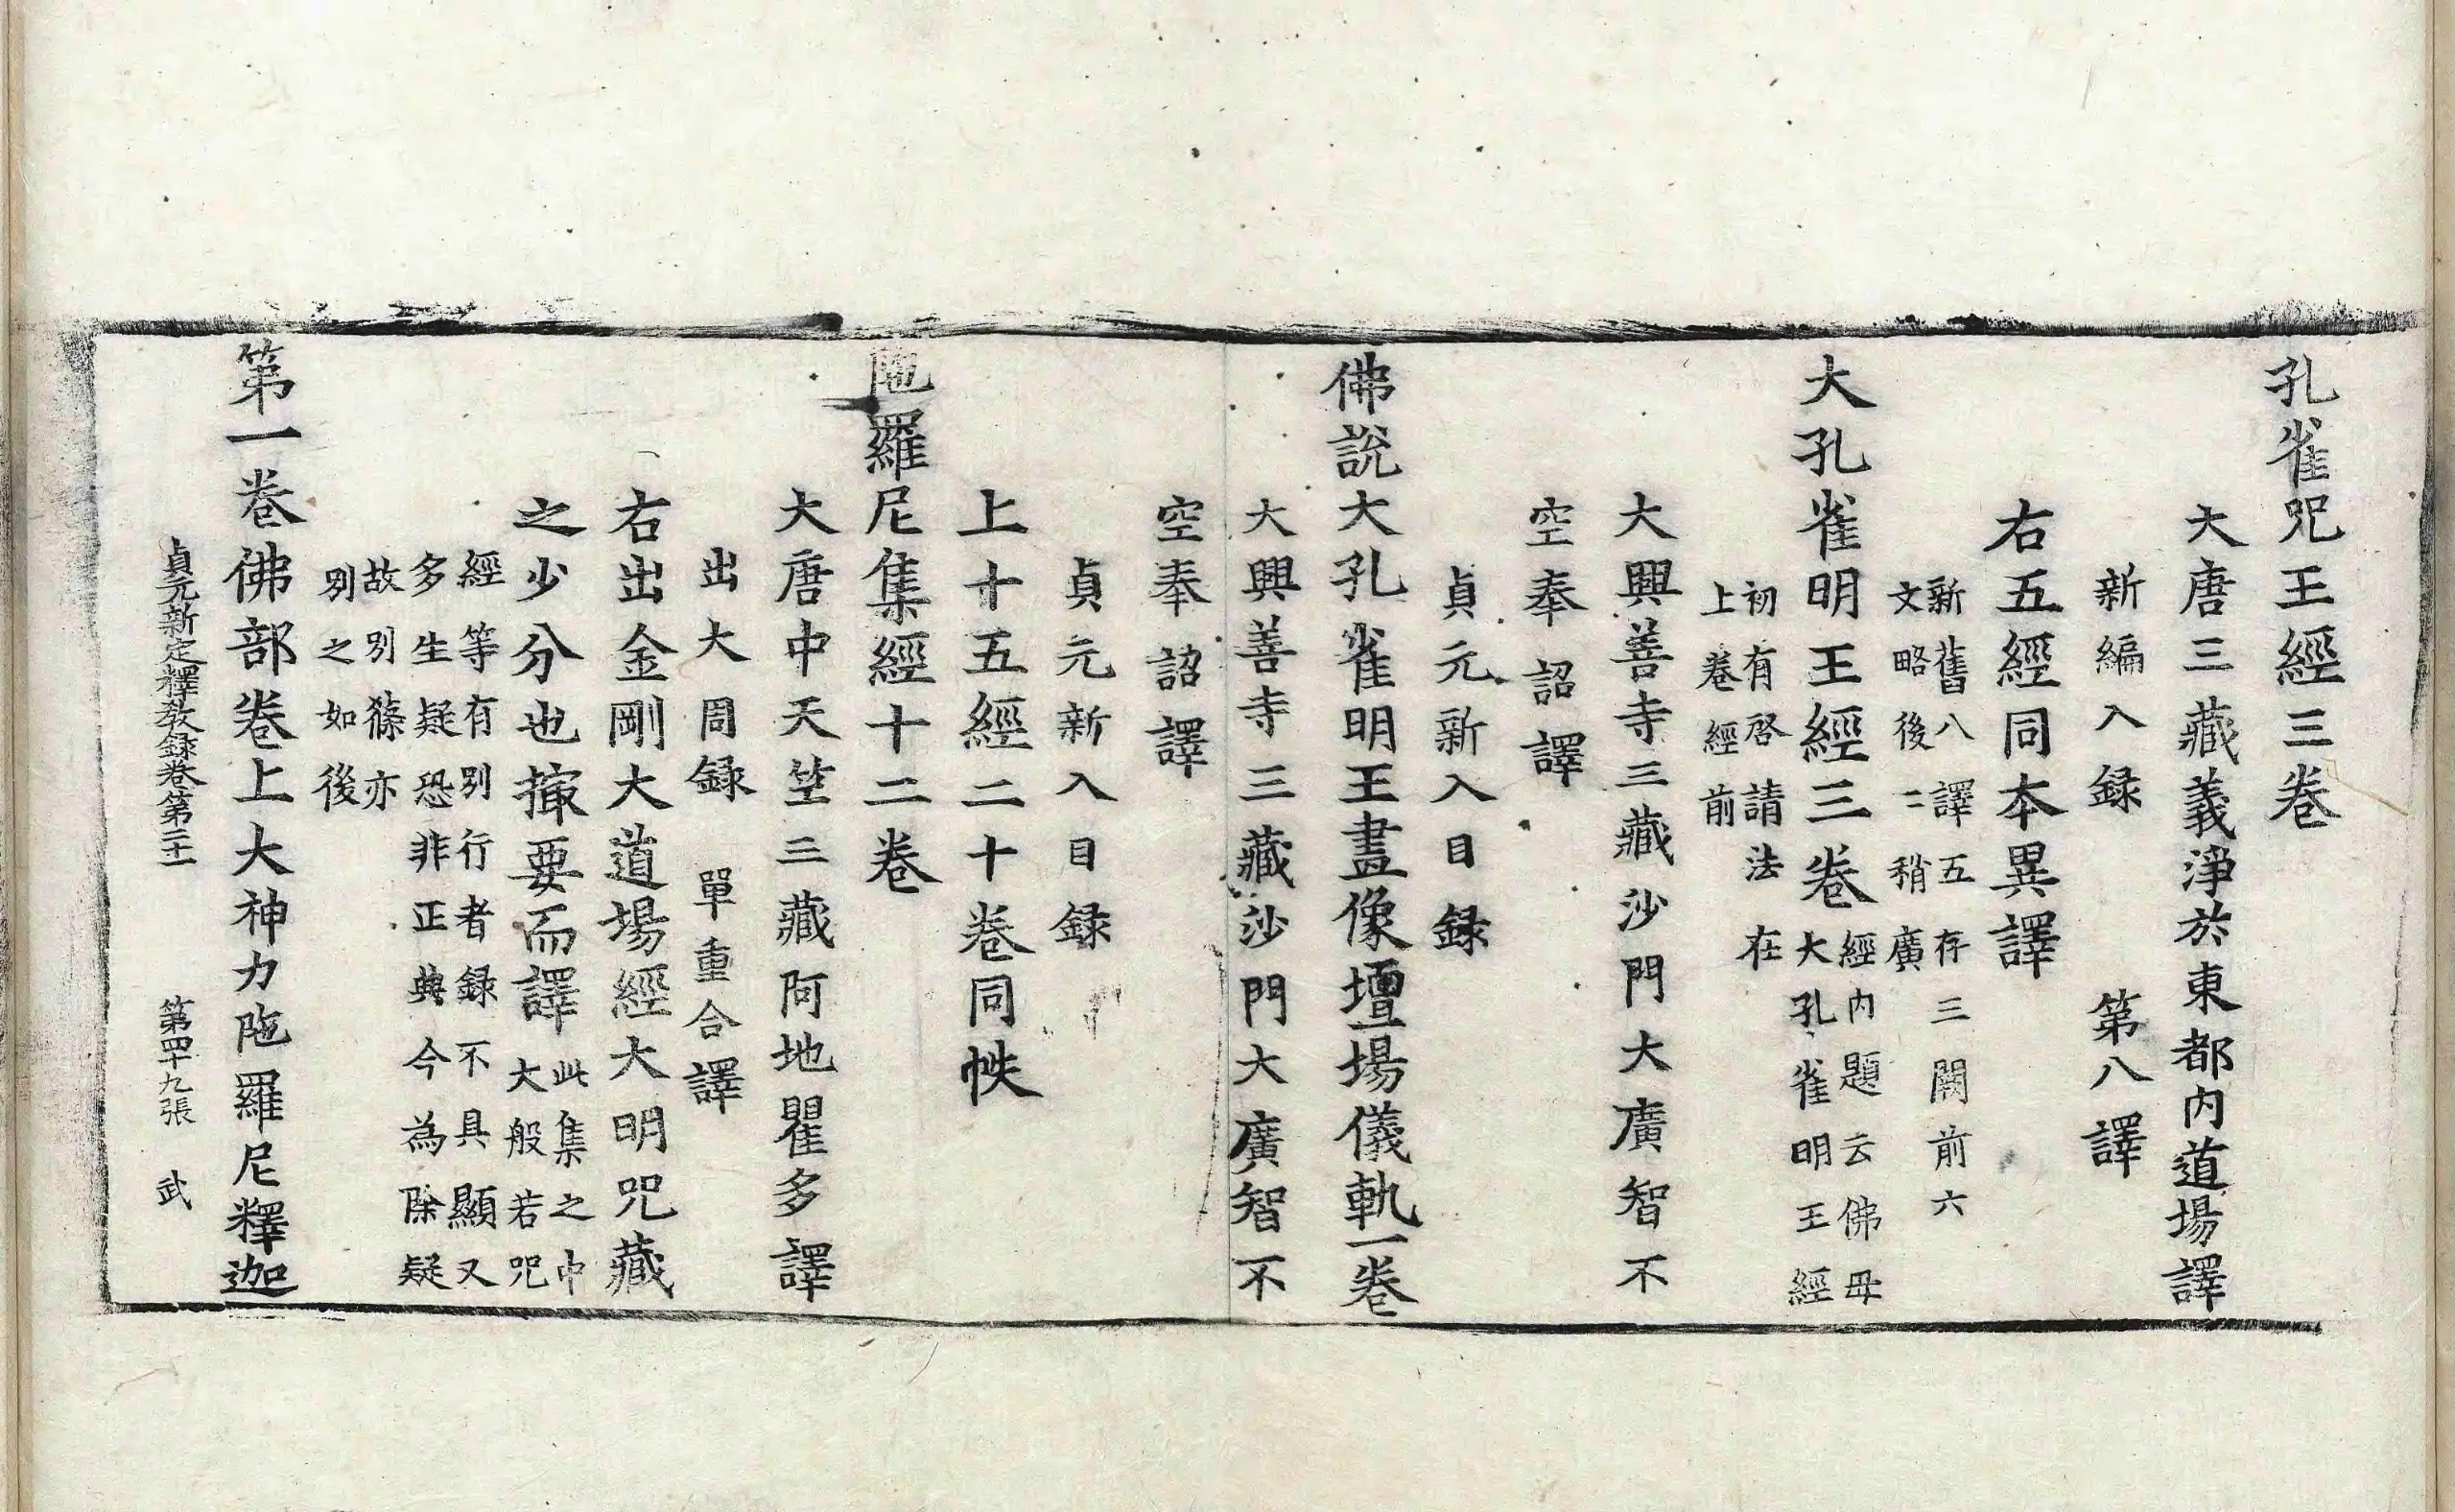 孔雀咒王經三卷
大唐三藏義淨於東都內道場譯
新編入録 第八譯
右五經同本異譯
新舊八譯五存三闕前六
文略後二稍廣
大孔雀明王經三卷
經內題云佛母
大孔雀明王經
初有啓請法在
上卷經前
大興善寺三藏沙門大廣智不
空奉詔譯
貞元新入目録
佛說大孔雀明王畫像壇場儀軌一卷
大興善寺三藏沙門大廣智不
空奉詔譯
貞元新入目録
上十五經二十卷同帙
陁羅尼集經十二卷
大唐中天竺三藏阿地瞿多譯
出大周録 單重合譯
右出金剛大道場經大明咒藏
之少分也撮要而譯
此集之中
大般若咒
經等有別行者録不具顯又
多生疑恐非正典今為除疑
故別條亦
別之如後
第一卷佛部卷上大神力陁羅尼釋迦
貞元新定釋教録卷第二十二 第四十九張 武